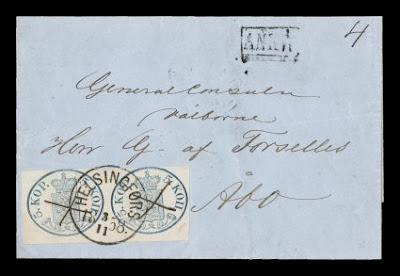 ANK
4
General Consuln
Välborne
Herr G. af Forselles
Åbo
5. KOP. 5. KOP.
HELSINGFORS
3
11
5. KOP. 5. KOP.